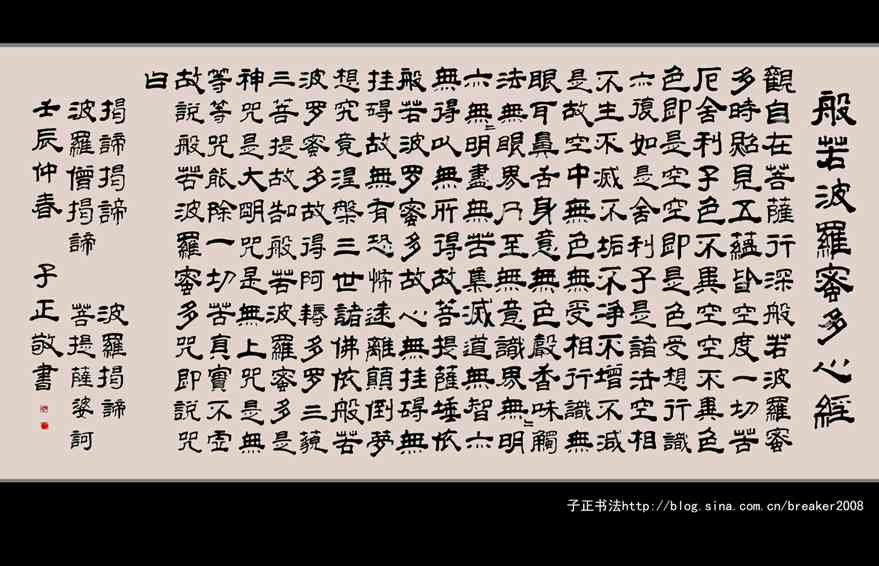 般若波羅蜜多心經
觀自在菩薩行深般若波羅蜜
多時照見五蘊皆空度一切苦
厄舍利子色不異空空不異色
色即是空空即是色受想行識
亦復如是舍利子是諸法空相
不生不滅不垢不淨不增不減
是故空中無色無受相行識無
眼耳鼻舌身意無色聲香味觸
法無眼界乃至無意識界無明
亦無明盡無苦集滅道無智亦
無得以無所得故菩提薩埵依
般若波罗蜜多故心無挂碍無
挂碍故無有恐怖遠離顛倒夢
想究竟涅槃三世諸佛依般若
波罗蜜多故得阿耨多罗三藐
三菩提故知般若波羅蜜多是
神咒是大明咒是無上咒是無
等等咒能除一切苦真實不虛
故說般若波羅蜜多咒即說咒
曰
揭諦揭諦 波羅揭諦
波羅僧揭諦 菩提薩婆訶
壬辰仲春 子正敬書
子正书法http://blog.sina.com.cn/breaker2008